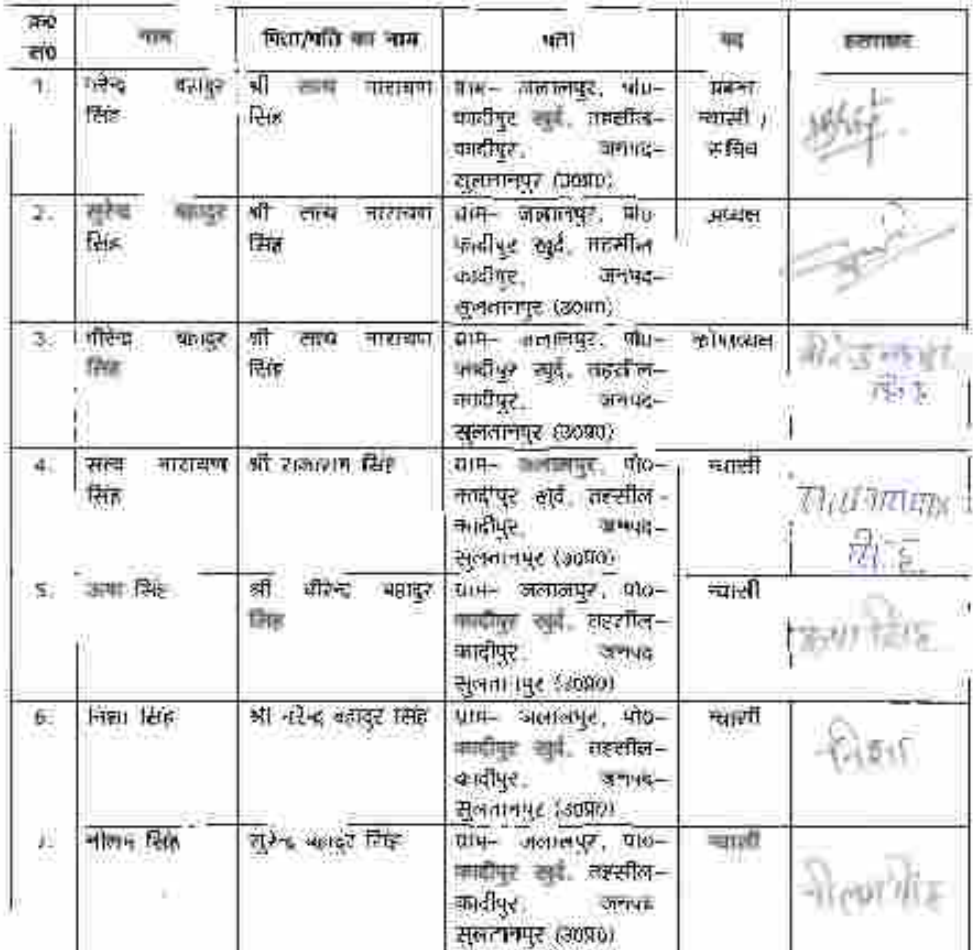 क्र०
सं०
नाम
पिता/पति का नाम
पता
पद
हस्ताक्षर
1.
नरेन्द्र बहादुर
सिंह
श्री सत्य नारायण
सिंह
ग्राम– जलालपुर, पो०–
कादीपुर खुर्द, तहसील–
कादीपुर, जनपद–
सुलतानपुर (उ०प्र०)
प्रबन्ध
न्यासी /
सचिव
2.
सुरेन्द्र बहादुर
सिंह
श्री सत्य नारायण
सिंह
ग्राम– जलालपुर, पो०
कादीपुर खुर्द, तहसील
कादीपुर, जनपद–
सुलतानपुर (उ०प्र०)
अध्यक्ष
3.
वीरेन्द्र बहादुर
सिंह
श्री सत्य नारायण
सिंह
ग्राम– जलालपुर, पो०–
कादीपुर खुर्द, तहसील–
कादीपुर, जनपद–
सुलतानपुर (उ०प्र०)
कोषाध्यक्ष
वीरेन्द्र बहादुर
सिंह
4.
सत्य नारायण
सिंह
श्री राजाराम सिंह
ग्राम– जलालपुर, पो०–
कादीपुर खुर्द, तहसील–
कादीपुर, जनपद–
सुलतानपुर (उ०प्र०)
न्यासी
सत्यनारायण
सिंह
5.
ऊषा सिंह
श्री वीरेन्द्र बहादुर
सिंह
ग्राम– जलालपुर, पो०–
कादीपुर खुर्द, तहसील–
कादीपुर, जनपद
सुलतानपुर (उ०प्र०)
न्यासी
ऊषा सिंह
6.
निशा सिंह
श्री नरेन्द्र बहादुर सिंह
ग्राम– जलालपुर, पो०–
कादीपुर खुर्द, तहसील–
कादीपुर, जनपद–
सुलतानपुर (उ०प्र०)
न्यासी
निशा
7.
नीलम सिंह
सुरेन्द्र बहादुर सिंह
ग्राम– जलालपुर, पो०–
कादीपुर खुर्द, तहसील–
कादीपुर, जनपद
सुलतानपुर (उ०प्र०)
न्यासी
नीलम सिंह